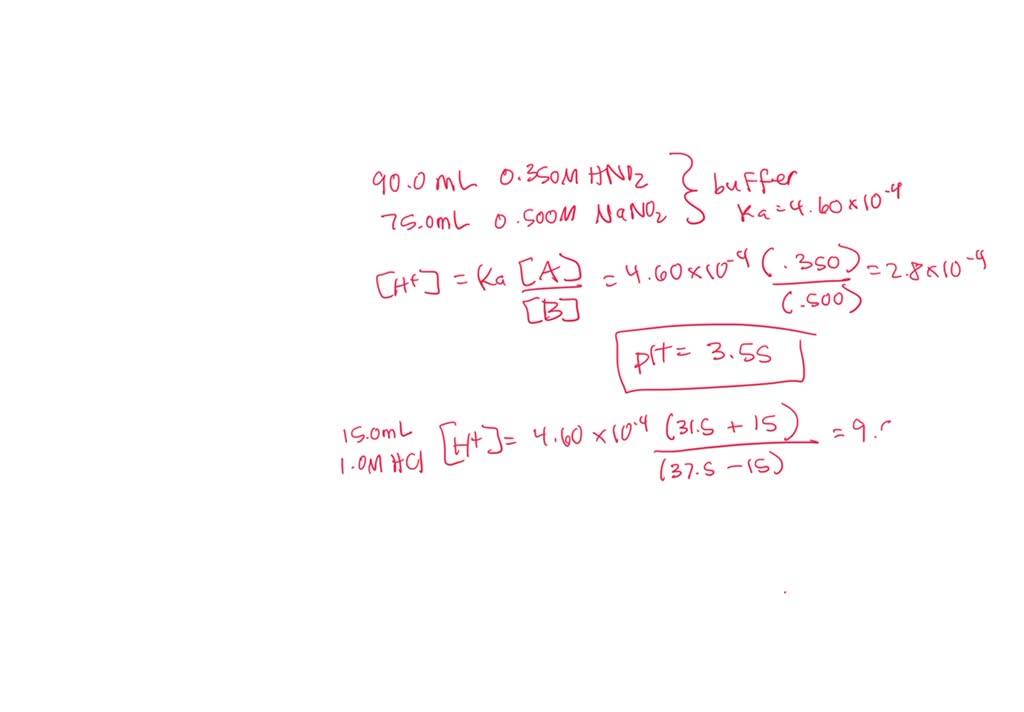 90.0 mL 0.350M HNO2 } buffer
75.0mL 0.500M NaNO2 Ka=4.60×10^-4
[H+] = Ka [A]/[B] = 4.60×10^-4 (.350)/(.500) = 2.8×10^-4
pH = 3.55
15.0mL 1.0M HCl [H+] = 4.60×10^-4 (31.5 + 15)/(37.5 - 15) = 9.